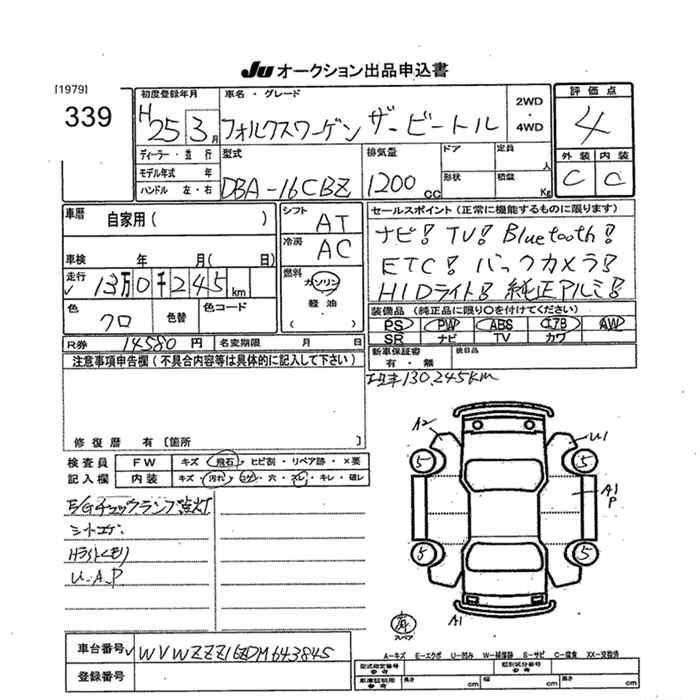 JU オークション出品申込書
[1979]
339
初度登録年月
H25 3月
車名・グレード
フォルクスワーゲン ザ・ビートル
2WD
・
4WD
評価点
4
外装 内装
C C
ディーラー・並行
モデル年式 年
ハンドル 左・右
型式
DBA-16CBZ
排気量
1200cc
ドア
形状
定員
人
積載
Kg
車歴 自家用( )
車検 年 月( 日)
走行
✓ 13万0千245km
色
クロ
色替
色コード
シフト
AT
冷房
AC
燃料
ガソリン
・
軽油
( )
R券 14580円
名変期限 月 日
セールスポイント (正常に機能するものに限ります)
ナビ! TV! Bluetooth!
ETC! バックカメラ!
HIDライト! 純正アルミ!
装備品(純正品に限り○を付けてください)
PS PW ABS エアB AW
SR ナビ TV カワ
新車保証書
有・無
後日品
注意事項申告欄(不具合内容等は具体的に記入して下さい)
130,245km
修復歴 有〔箇所 〕
検査員
記入欄
FW キズ・飛石・ヒビ割・リペア跡・×要
内装 キズ・汚れ・コゲ・穴・スレ・キレ・破レ
E/Gチェックランプ点灯
シートコゲ
Hライトくもり
U.A.P
A2
U1
A1
P
5
5
5
5
A1
スペア
車台番号 ✓ WVWZZZ16ZDM643845
登録番号
A-キズ E-エクボ U-凹み W-補修跡 S-サビ C-腐食 XX-交換済
型式指定番号
参考
類別区分番号
参考
車庫証明用
参考
長さ cm
幅 cm
高さ cm